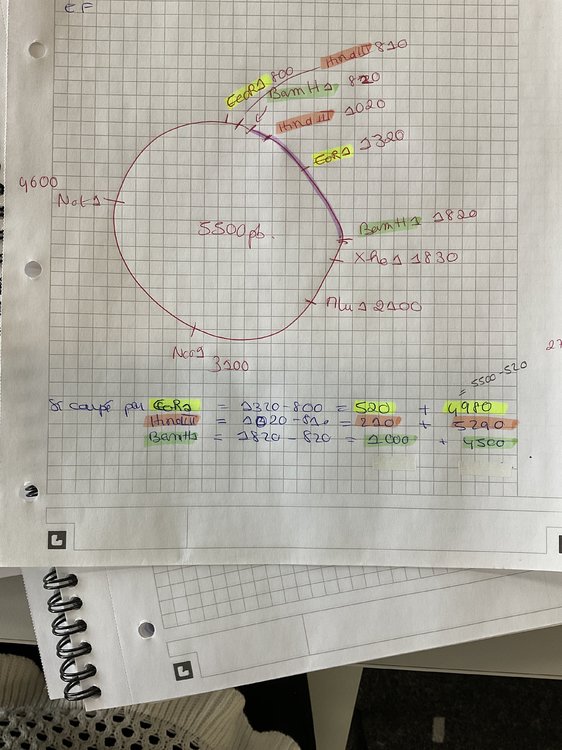 EF
HindIII 810
EcoR1 800
BamH1 820
HindIII 1020
EcoR1 1320
4600
Not1
5500 pb.
BamH1 1820
Xho1 1830
Mlu1 2100
Nco1
3100
27
= 5500-520
Si coupé par EcoR1 = 1320-800 = 520 + 4980
HindIII = 1020-810 = 210 + 5290
BamH1 = 1820-820 = 1000 + 4500